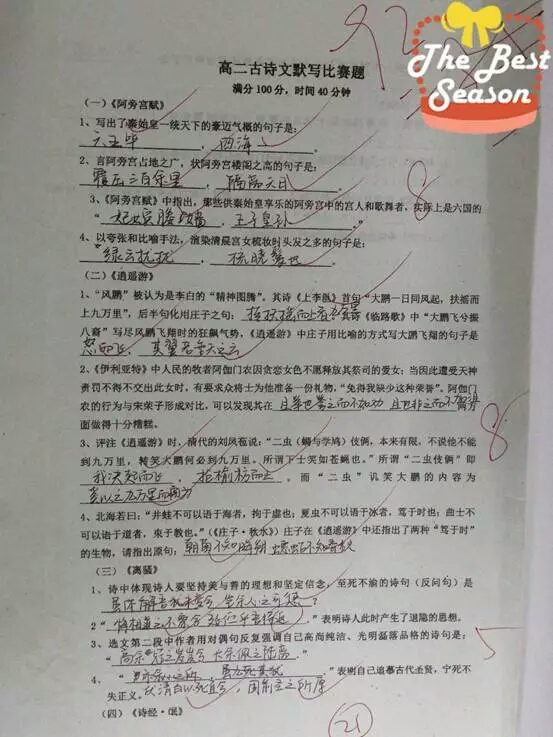 The Best
Season
高二古诗文默写比赛题
满分 100 分，时间 40 分钟
（一）《阿旁宫赋》
1、写出了秦始皇一统天下的豪迈气概的句子是：
六王毕 ， 四海一
2、言阿旁宫占地之广，状阿旁宫楼阁之高的句子是：
覆压三百余里 ， 隔离天日
3、《阿旁宫赋》中指出，那些供秦始皇享乐的阿旁宫中的宫人和歌舞者，实际上是六国的
“ 妃嫔媵嫱 ， 王子皇孙 ”
4、以夸张和比喻手法，渲染清晨宫女梳妆时头发之多的句子是：
“绿云扰扰 ， 梳晓鬟也 ”
8
（二）《逍遥游》
1、“风鹏”被认为是李白的“精神图腾”。其诗《上李邕》首句“大鹏一日同风起，扶摇而
上九万里”，后半句化用庄子之句： 《临路歌》中“大鹏飞兮振
八裔”写尽风鹏飞翔时的狂飙气势，《逍遥游》中庄子用比喻的方式写大鹏飞翔的句子是
怒而飞 ， 其翼若垂天之云
2、《伊利亚特》中人民的牧者阿伽门农因贪恋女色不愿释放其祭司的爱女；当因此遭受天神
责罚不得不交出此女时，有要求众将士为他准备一份礼物，“免得我缺少这种荣誉”。阿伽门
农的行为与宋荣子形成对比，可以发现其在 且举世誉之而不加劝 且世非之而不加沮 方
面做得十分糟糕。
8
3、评注《逍遥游》时，清代的刘凤苞说：“二虫（蜩与学鸠）伎俩，本来有限，不说他不能
到九万里，转笑大鹏何必到九万里。所谓下士笑如苍蝇也。”所谓“二虫伎俩”即
我决起而飞 ， 抢榆枋而止 。而“二虫”讥笑大鹏的内容为
奚以之九万里而南为
4、北海若曰：“井蛙不可以语于海者，拘于虚也；夏虫不可以语于冰者，笃于时也；曲士不
可以语于道者，束于教也。”（《庄子·秋水》）庄子在《逍遥游》中还指出了两种“笃于时”
的生物，请指出原句： 朝菌不知晦朔 蟪蛄不知春秋
（三）《离骚》
1、诗中体现诗人要坚持美与善的理想和坚定信念，至死不渝的诗句（反问句）是
虽体解吾犹未变兮 ？
2“ ”表明诗人此时产生了退隐的思想。
3、选文第二段中作者用对偶句反复强调自己高尚纯洁、光明磊落品格的诗句是：
5
“ 高余冠之岌岌兮 长余佩之陆离 ”
4、“ ， ”表明自己追慕古代圣贤，宁死不
失正义。伏清白以死直兮 ， 固前圣之所厚
（四）《诗经·氓》
21